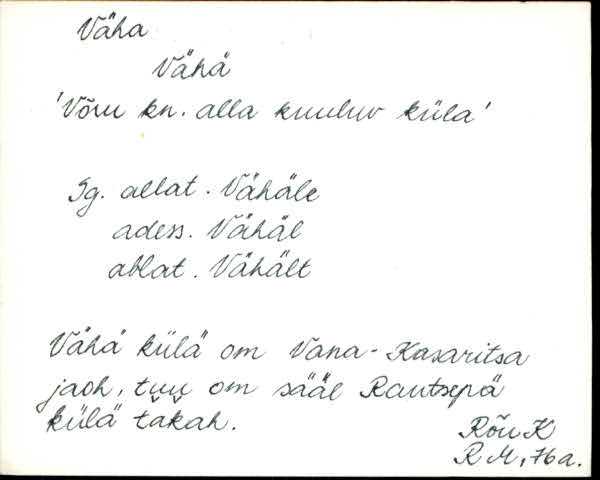 Väha
Vähä
'Võru kn. alla kuuluv küla'
Sg. allat. Vähäle
adess. Vähäl
ablat. Vähält
Vähä külä om Vana-Kasaritsa
jaoh, tuu om sääl Rautsepä
külä takah.
Rõu K
R M, 76 a.